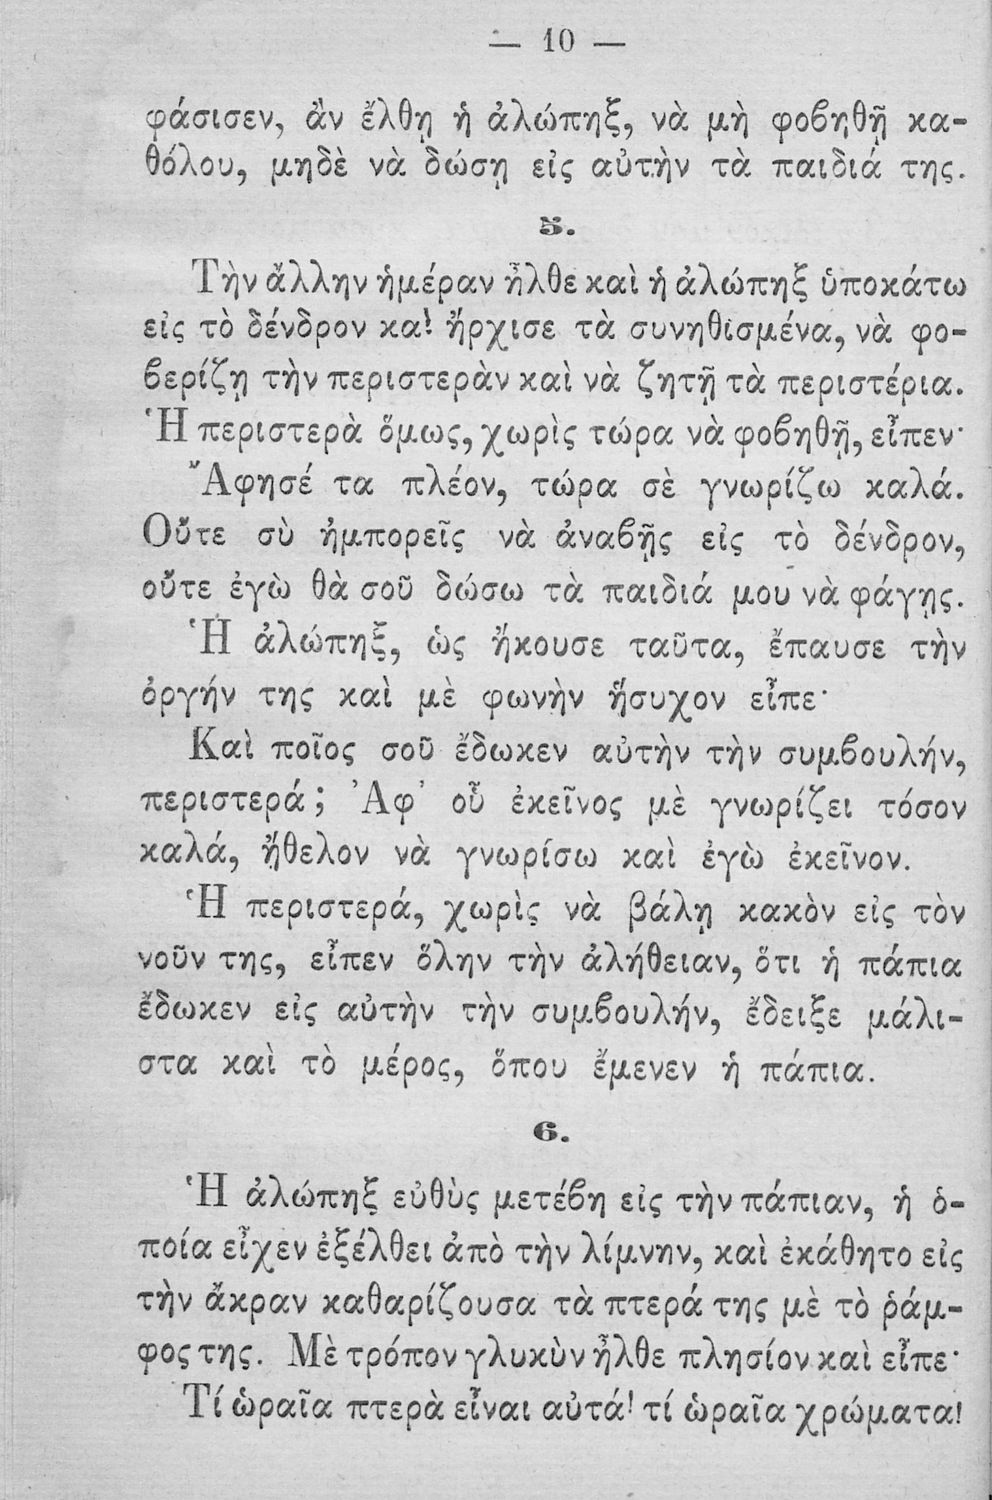 — 10 —
φάσισεν, ἂν ἔλθῃ ἡ ἀλώπηξ, νὰ μὴ φοβηθῇ κα-
θόλου, μηδὲ νὰ δώσῃ εἰς αὐτὴν τὰ παιδιά της.
5.
Τὴν ἄλλην ἡμέραν ἦλθε καὶ ἡ ἀλώπηξ ὑποκάτω
εἰς τὸ δένδρον καὶ ἤρχισε τὰ συνηθισμένα, νὰ φο-
βερίζῃ τὴν περιστερὰν καὶ νὰ ζητῇ τὰ περιστέρια.
Ἡ περιστερὰ ὅμως, χωρὶς τώρα νὰ φοβηθῇ, εἶπεν·
Ἄφησέ τα πλέον, τώρα σὲ γνωρίζω καλά.
Οὔτε σὺ ἠμπορεῖς νὰ ἀναβῇς εἰς τὸ δένδρον,
οὔτε ἐγὼ θὰ σοῦ δώσω τὰ παιδιά μου νὰ φάγῃς.
Ἡ ἀλώπηξ, ὡς ἤκουσε ταῦτα, ἔπαυσε τὴν
ὀργήν της καὶ μὲ φωνὴν ἥσυχον εἶπε·
Καὶ ποῖος σοῦ ἔδωκεν αὐτὴν τὴν συμβουλήν,
περιστερά; Ἀφ' οὗ ἐκεῖνος μὲ γνωρίζει τόσον
καλά, ἤθελον νὰ γνωρίσω καὶ ἐγὼ ἐκεῖνον.
Ἡ περιστερά, χωρὶς νὰ βάλῃ κακὸν εἰς τὸν
νοῦν της, εἶπεν ὅλην τὴν ἀλήθειαν, ὅτι ἡ πάπια
ἔδωκεν εἰς αὐτὴν τὴν συμβουλήν, ἔδειξε μάλι-
στα καὶ τὸ μέρος, ὅπου ἔμενεν ἡ πάπια.
6.
Ἡ ἀλώπηξ εὐθὺς μετέβη εἰς τὴν πάπιαν, ἡ ὁ-
ποία εἶχεν ἐξέλθει ἀπὸ τὴν λίμνην, καὶ ἐκάθητο εἰς
τὴν ἄκραν καθαρίζουσα τὰ πτερά της μὲ τὸ ῥάμ-
φος της. Μὲ τρόπον γλυκὺν ἦλθε πλησίον καὶ εἶπε·
Τί ὡραῖα πτερὰ εἶναι αὐτά! τί ὡραῖα χρώματα!